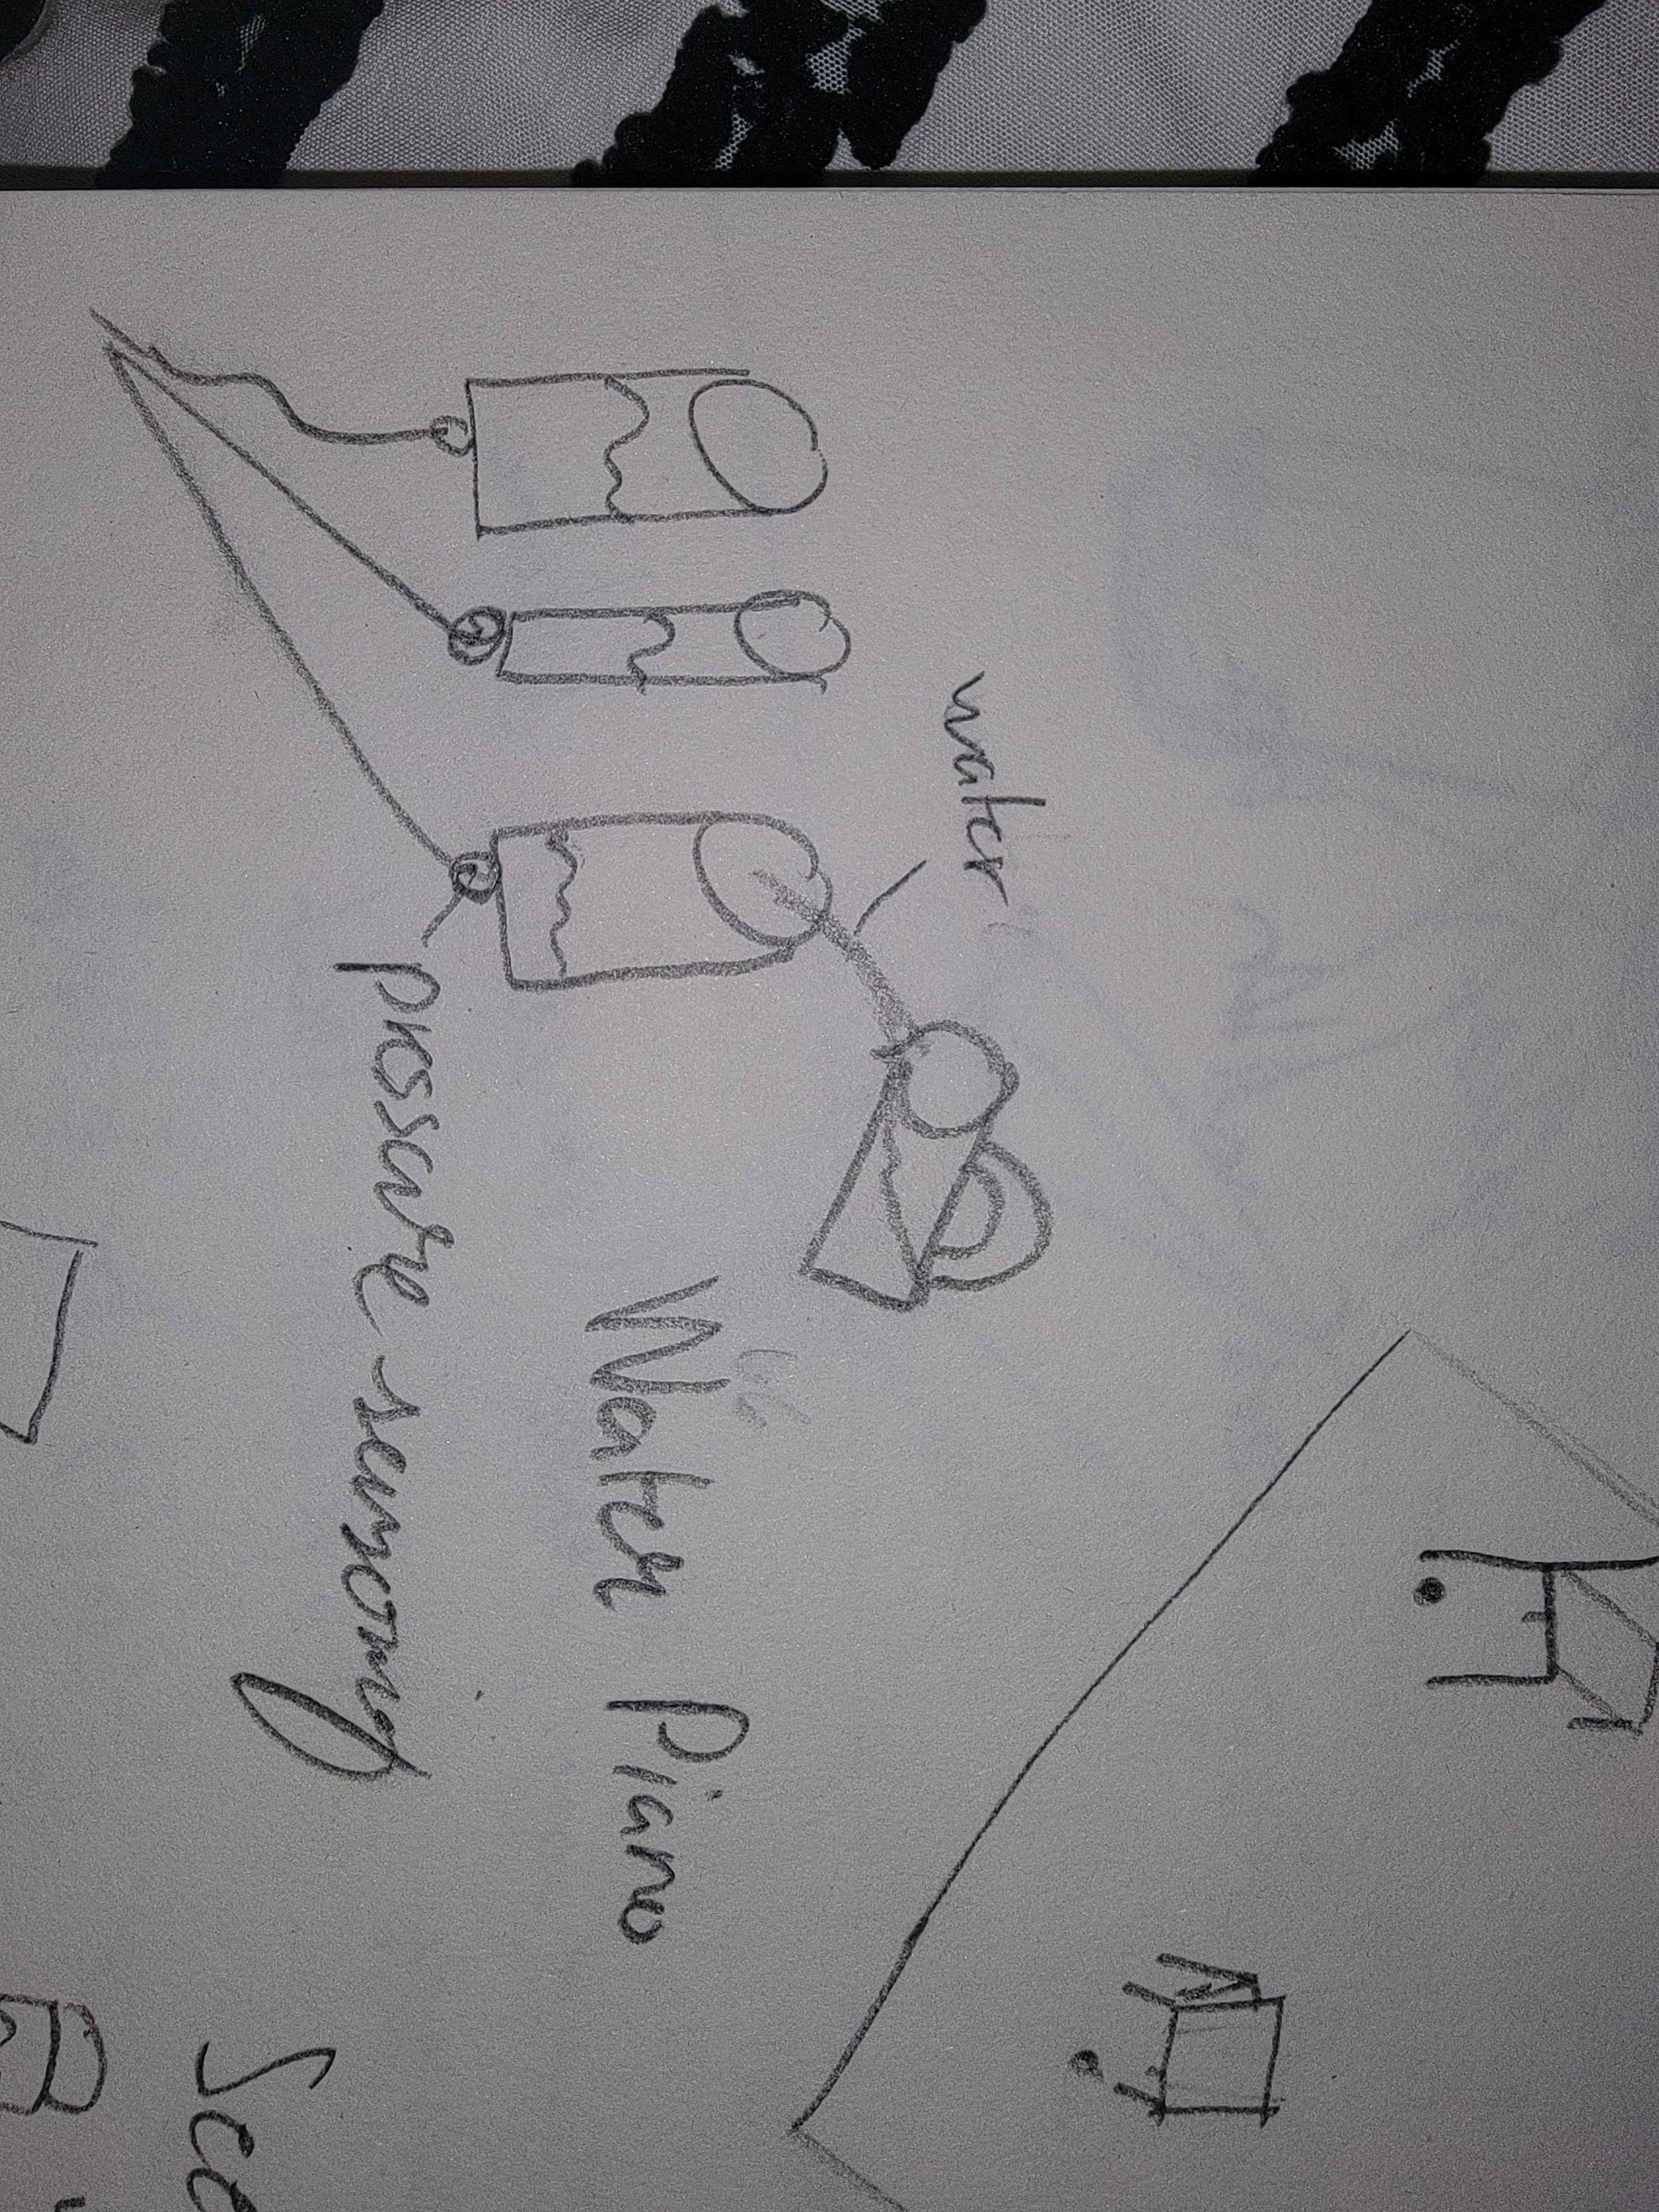 water
Water Piano
pressure sensoring